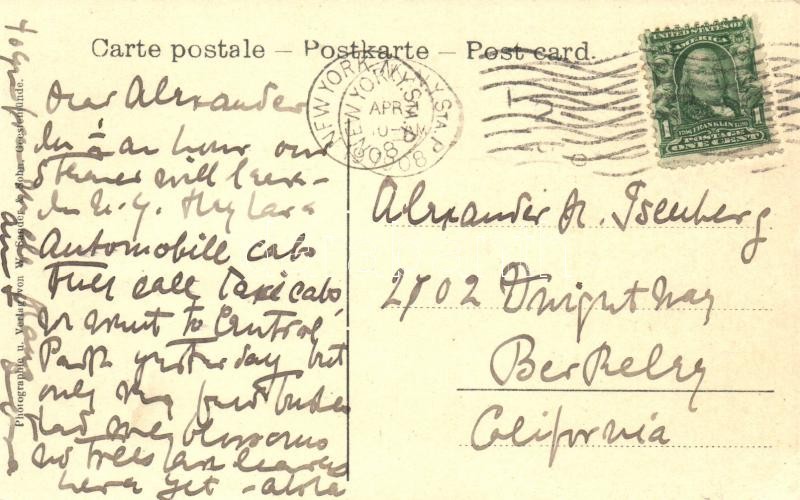 Carte postale – Postkarte – Post card.
Dear Alexander
In ½ an hour our
Steamer will leave
In N.Y. they have
Automobill cabs
they call Taxicabs,
We went to Central
Park yesterday but
only very few bushes
had any blossoms
no trees have leaves
here yet - aloha
with many
aunt
Alexander H. Isenberg
2702 Dwight Way
Berkeley
California
NEW YORK, N.Y. STA. P
APR
1908
UNITED STATES OF AMERICA
1 FRANKLIN 1
POSTAGE ONE CENT
Photographie u. Verlag von W. Sander & Sohn, Geestemünde.